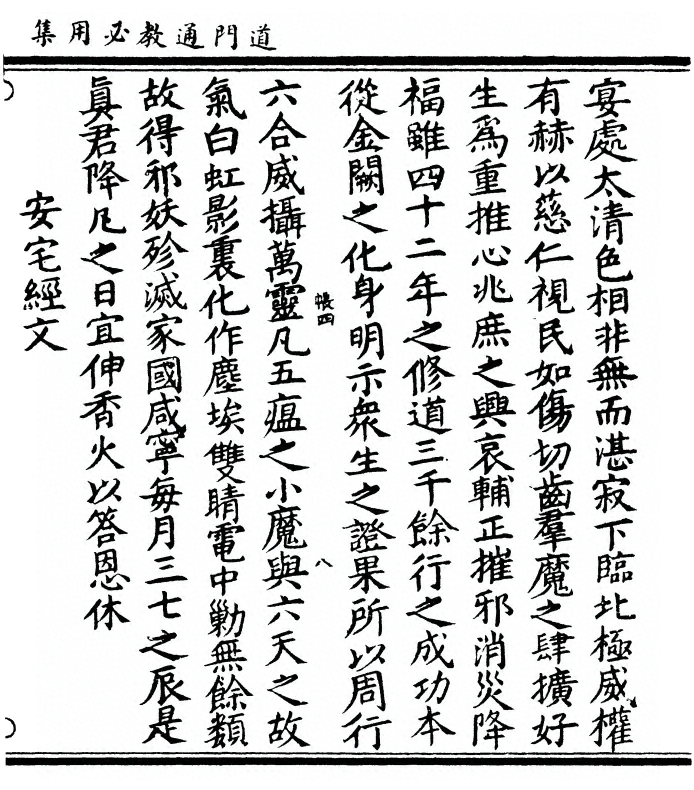 道門通教必用集
宴處太清色相非無而湛寂下臨北極威權
有赫以慈仁視民如傷切齒羣魔之肆擴好
生爲重推心兆庶之興哀輔正摧邪消災降
福雖四十二年之修道三千餘行之成功本
從金闕之化身明示衆生之證果所以周行
帳四
八
六合威攝萬靈凡五瘟之小魔與六天之故
氣白虹影裏化作塵埃雙睛電中勦無餘類
故得邪妖殄滅家國咸寧每月三七之辰是
眞君降凡之日宜伸香火以答恩休
安宅經文